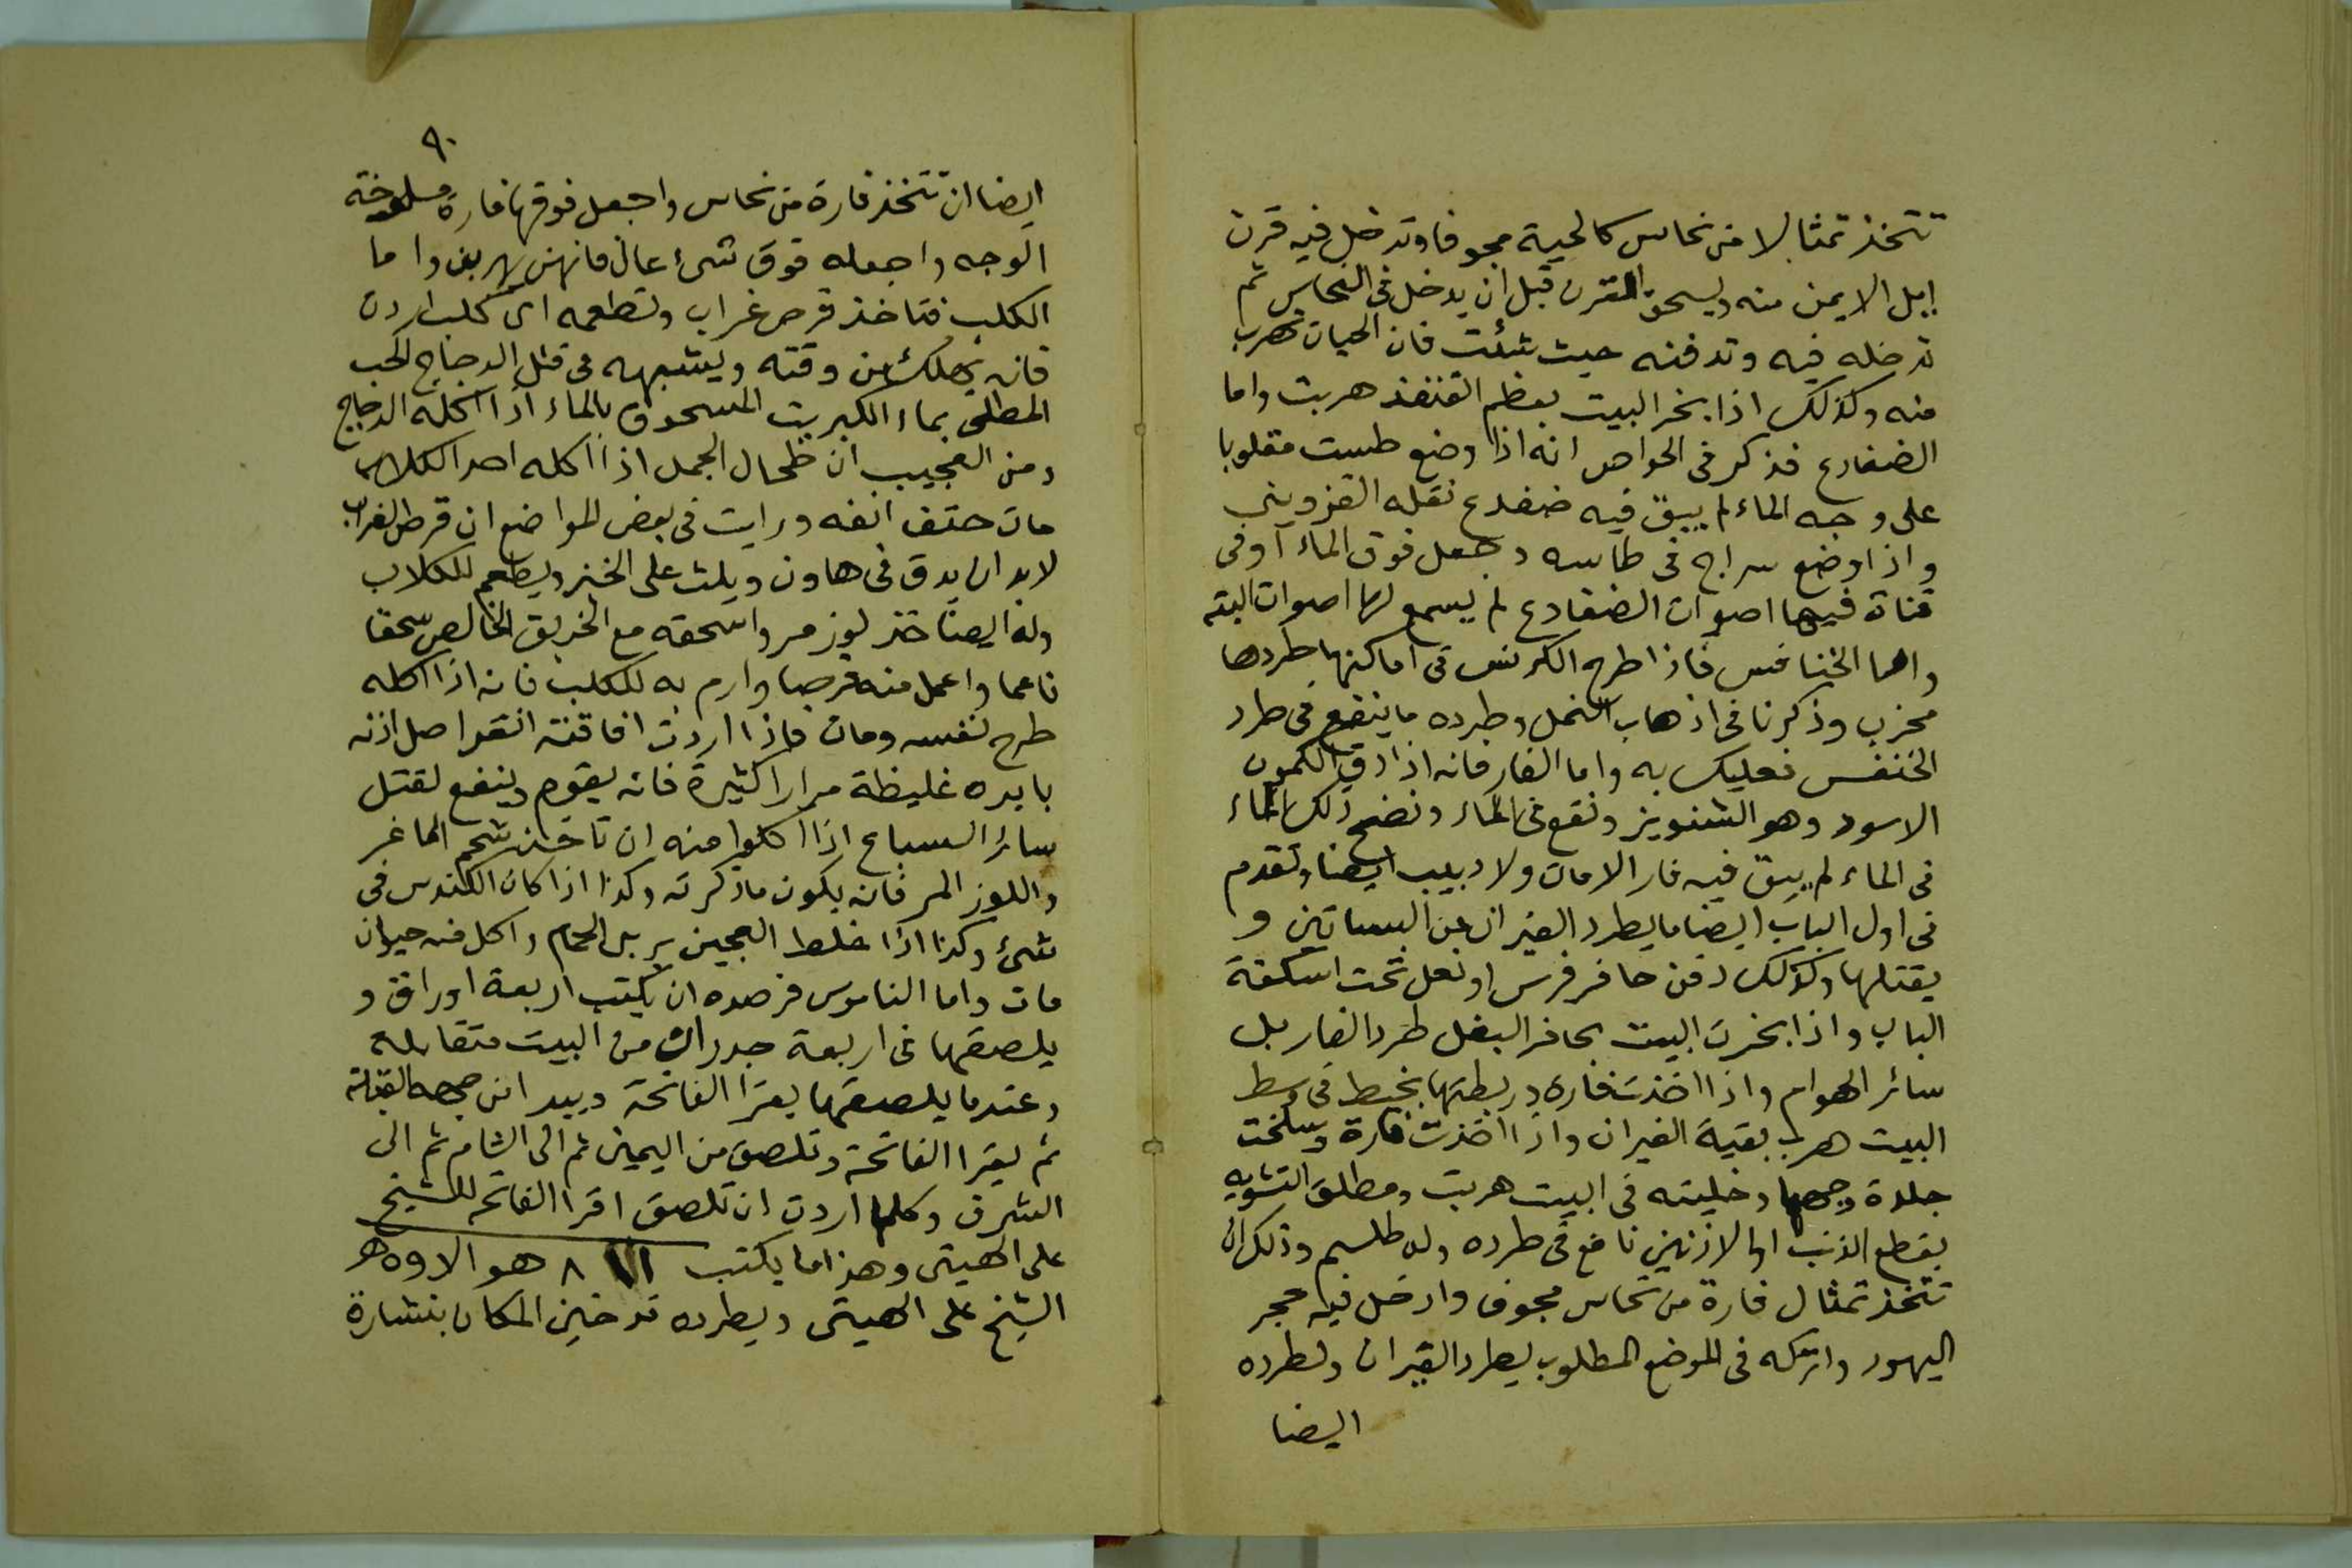 تتخذ تمثالا من نحاس كالحية مجوفا وتدخل فيه قرن
ابل الايمن منه ويسحق القرن قبل ان يدخل في النحاس ثم
تدخله فيه وتدفنه حيث شئت فان الحيات تهرب
منه وكذلك اذا بخر البيت بعظم القنفذ هربت واما
الضفادع فذكر في الخواص انه اذا وضع طست مقلوبا
على وجه الماء لم يبق فيه ضفدع نقله القزويني
واذا وضع سراج في طاسه وجعل فوق الماء اوفى
قناة فيها اصوات الضفادع لم يسمع لها اصوات البته
واما الخنافس فاذا طرح الكرفس في اماكنها طردها
مجرب وذكرنا في اذهاب النمل وطرده ما ينفع في طرد
الخنفس فعليك به واما الفار فانه اذا دق الكمون
الاسود وهو الشنويز ونقع في الماء ونضح ذلك الماء
في الماء لم يبق فيه فار الامات ولا دبيب ايضا وتقدم
في اول الباب ايضا ما يطرد الفيران عن البساتين و
يقتلها وكذلك دفن حافر فرس او نعل تحت اسكفة
الباب واذا بخرت البيت بحافر البغل طرد الفار بل
سائر الهوام واذا اخذت فارة وربطتها بخيط في وسط
البيت هرب بقية الفيران واذا اخذت فارة وسلخت
جلدة وجهها وخليته في البيت هربت ومطلق التشويه
بقطع الذنب او الاذنين نافع في طرده وله طلسم وذلك ان
تتخذ تمثال فارة من نحاس مجوف وادخل فيه حجر
اليهود واتركه في الموضع المطلوب يطرد الفيران ولطرده
ايضا
٩٠
ايضا ان تتخذ فارة من نحاس واجعل فوقها فارة مسلوخة
الوجه واجعله فوق شيء عال فانهن يهربن واما
الكلب فتاخذ قرص غراب وتطعمه اي كلب اردت
فانه يهلك من وقته ويشبهه في قتل الدجاج الحب
المطلى بماء الكبريت المسحوق بالماء اذا اكله الدجاج
ومن العجيب ان طحال الجمل اذا اكله احد الكلاب
مات حتف انفه ورايت في بعض المواضع ان قرص الغراب
لابد ان يدق في هاون ويلث على الخبز ويطعم للكلاب
وله ايضا خذ لوز مر واسحقه مع الخربق الخالص سحقا
ناعما واعمل منه قرصا وارم به للكلب فانه اذا اكله
طرح نفسه ومات فاذا اردت افاقته انقر اصل اذنه
بابره غليظة مرارا كثيرة فانه يقوم وينفع لقتل
سائر السباع اذا اكلوا منه ان تاخذ شحم الماعز
واللوز المر فانه يكون ما ذكرته وكذا اذا كان الكندس في
شيء وكذا اذا خلط العجين بزبل الحمام واكل منه حيوان
مات واما الناموس فرصده ان يكتب اربعة اوراق و
يلصقها في اربعة جدران من البيت متقابله
وعندما يلصقها يقرا الفاتحة ويبدا من جهه القبلة
ثم يقرا الفاتحة وتلصق من اليمين ثم الى الشام ثم الى
الشرق وكلما اردت ان تلصق اقرا الفاتحه للشيخ
على الهيتى وهذا ما يكتب ٨ ١١١ هو الا وه هـ
الشيخ على الهيتى ويطرده تدخين المكان بنشارة